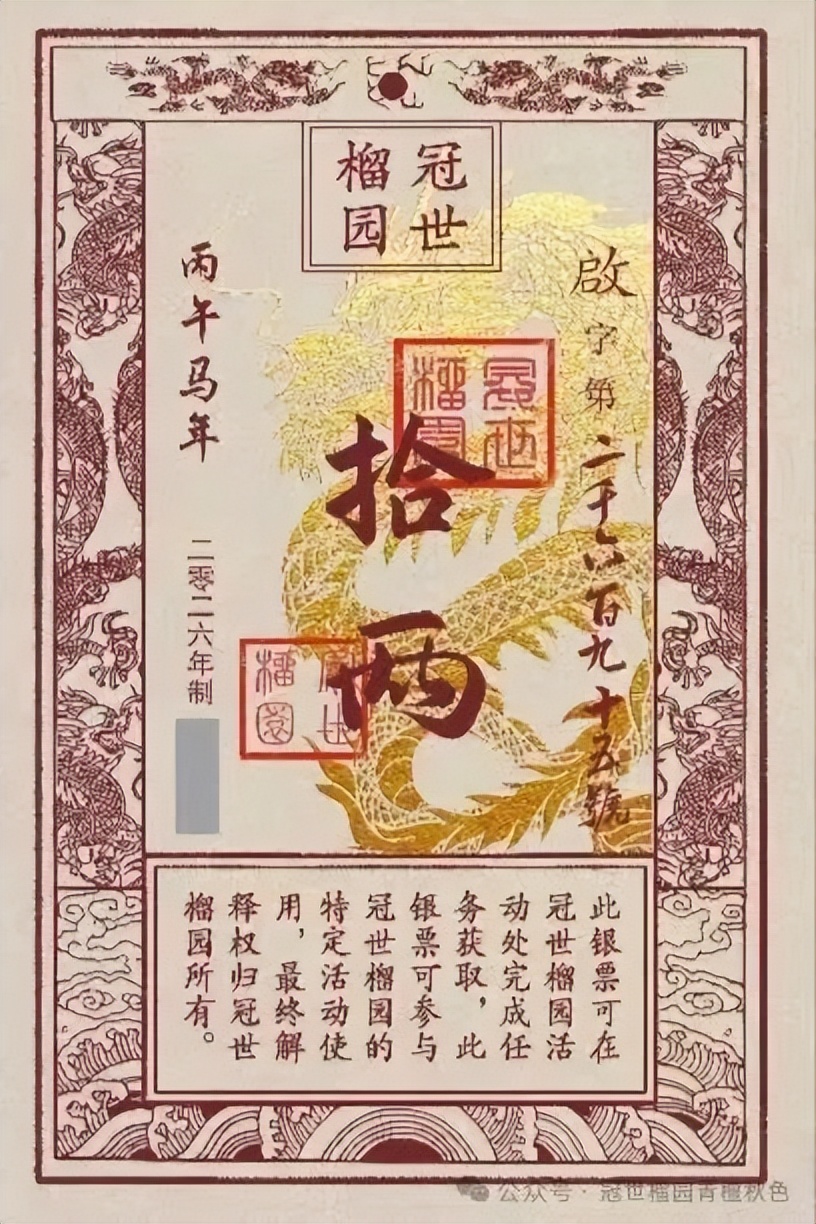 冠世
榴园
啟字第二千六百九十五號
冠世
榴園
拾兩
丙午马年
二零二六年制
冠世
榴園
此银票可在
冠世榴园活
动处完成任
务获取，此
银票可参与
冠世榴园的
特定活动使
用，最终解
释权归冠世
榴园所有。
公众号·冠世榴园青檀秋色